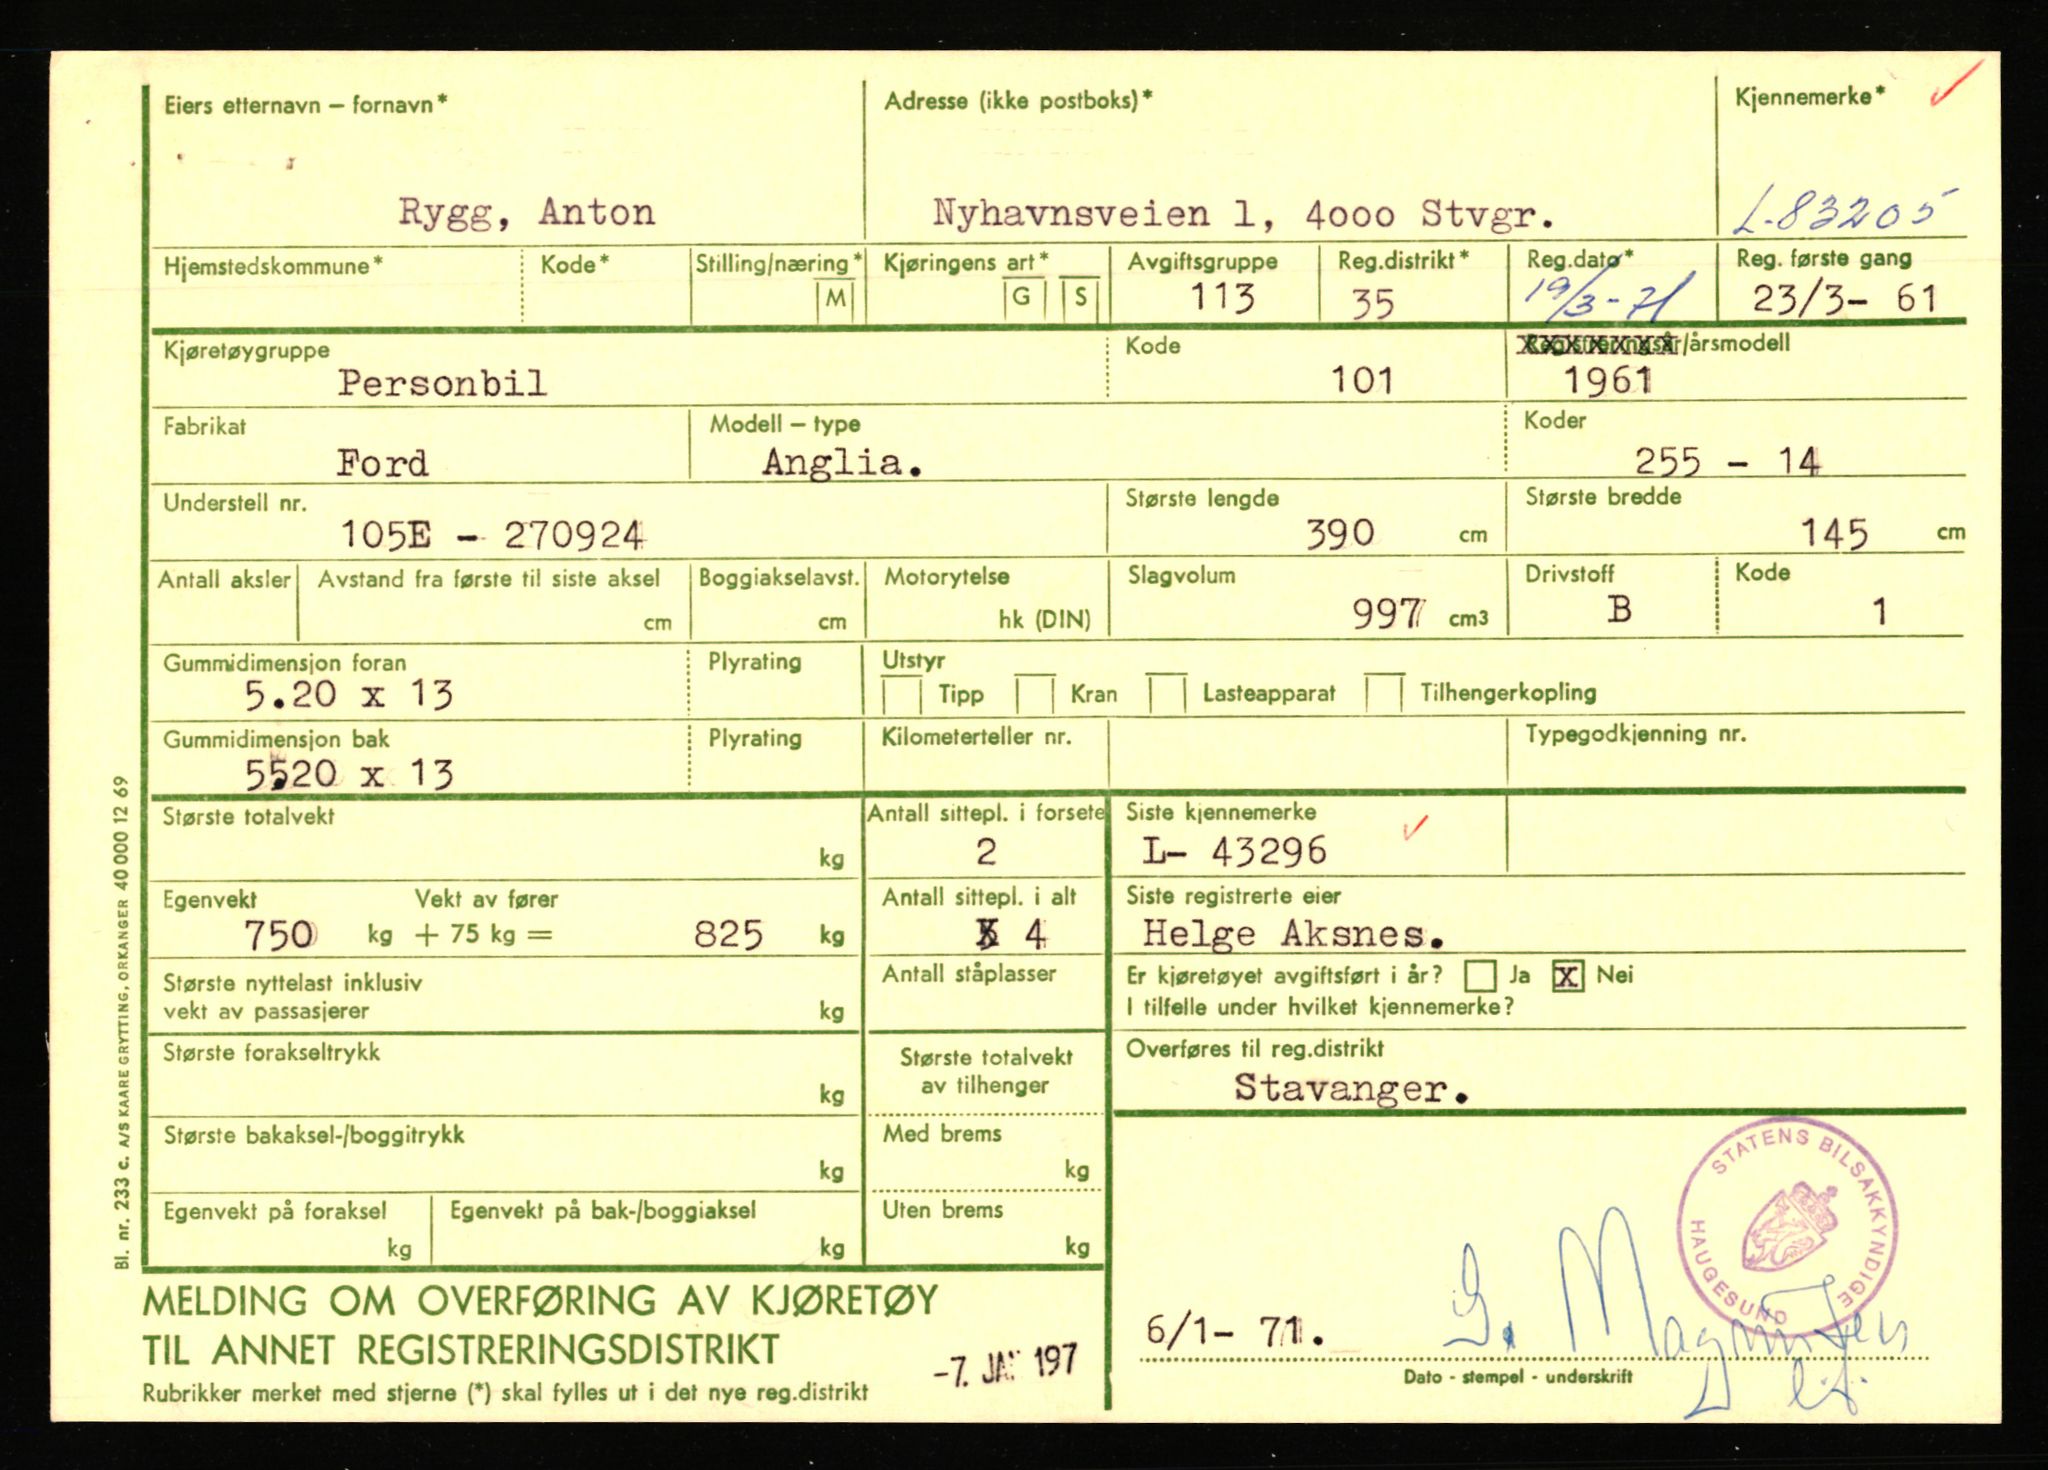 Eiers etternavn – fornavn*
Adresse (ikke postboks)*
Kjennemerke*
Rygg, Anton
Nyhavnsveien 1, 4000 Stvgr.
L-83205
Hjemstedskommune*
Kode*
Stilling/næring*
M
Kjøringens art*
G
S
Avgiftsgruppe
113
Reg.distrikt*
35
Reg.dato*
19/3-71
Reg. første gang
23/3- 61
Kjøretøygruppe
Personbil
Kode
101
Registreringsår/årsmodell
1961
Fabrikat
Ford
Modell – type
Anglia.
Koder
255 - 14
Understell nr.
105E - 270924
Største lengde
390 cm
Største bredde
145 cm
Antall aksler
Avstand fra første til siste aksel
cm
Boggiakselavst.
cm
Motorytelse
hk (DIN)
Slagvolum
997 cm3
Drivstoff
B
Kode
1
Gummidimensjon foran
5.20 x 13
Plyrating
Utstyr
Tipp
Kran
Lasteapparat
Tilhengerkopling
Gummidimensjon bak
5.20 x 13
Plyrating
Kilometerteller nr.
Typegodkjenning nr.
Største totalvekt
kg
Antall sittepl. i forsete
2
Siste kjennemerke
L- 43296
Egenvekt
Vekt av fører
750 kg + 75 kg = 825 kg
Antall sittepl. i alt
4
Siste registrerte eier
Helge Aksnes.
Største nyttelast inklusiv
vekt av passasjerer
kg
Antall ståplasser
Er kjøretøyet avgiftsført i år? Ja X Nei
I tilfelle under hvilket kjennemerke?
Største forakseltrykk
kg
Største totalvekt
av tilhenger
Overføres til reg.distrikt
Stavanger.
Største bakaksel-/boggitrykk
kg
Med brems
kg
Egenvekt på foraksel
kg
Egenvekt på bak-/boggiaksel
kg
Uten brems
kg
STATENS BILSAKKYNDIGE
HAUGESUND
MELDING OM OVERFØRING AV KJØRETØY
TIL ANNET REGISTRERINGSDISTRIKT
Rubrikker merket med stjerne (*) skal fylles ut i det nye reg.distrikt
-7. JAN 197
6/1- 71.
G. Magnussen
Dato - stempel - underskrift
Bl. nr. 233 c. A/S KAARE GRYTTING, ORKANGER 40 000 12 69